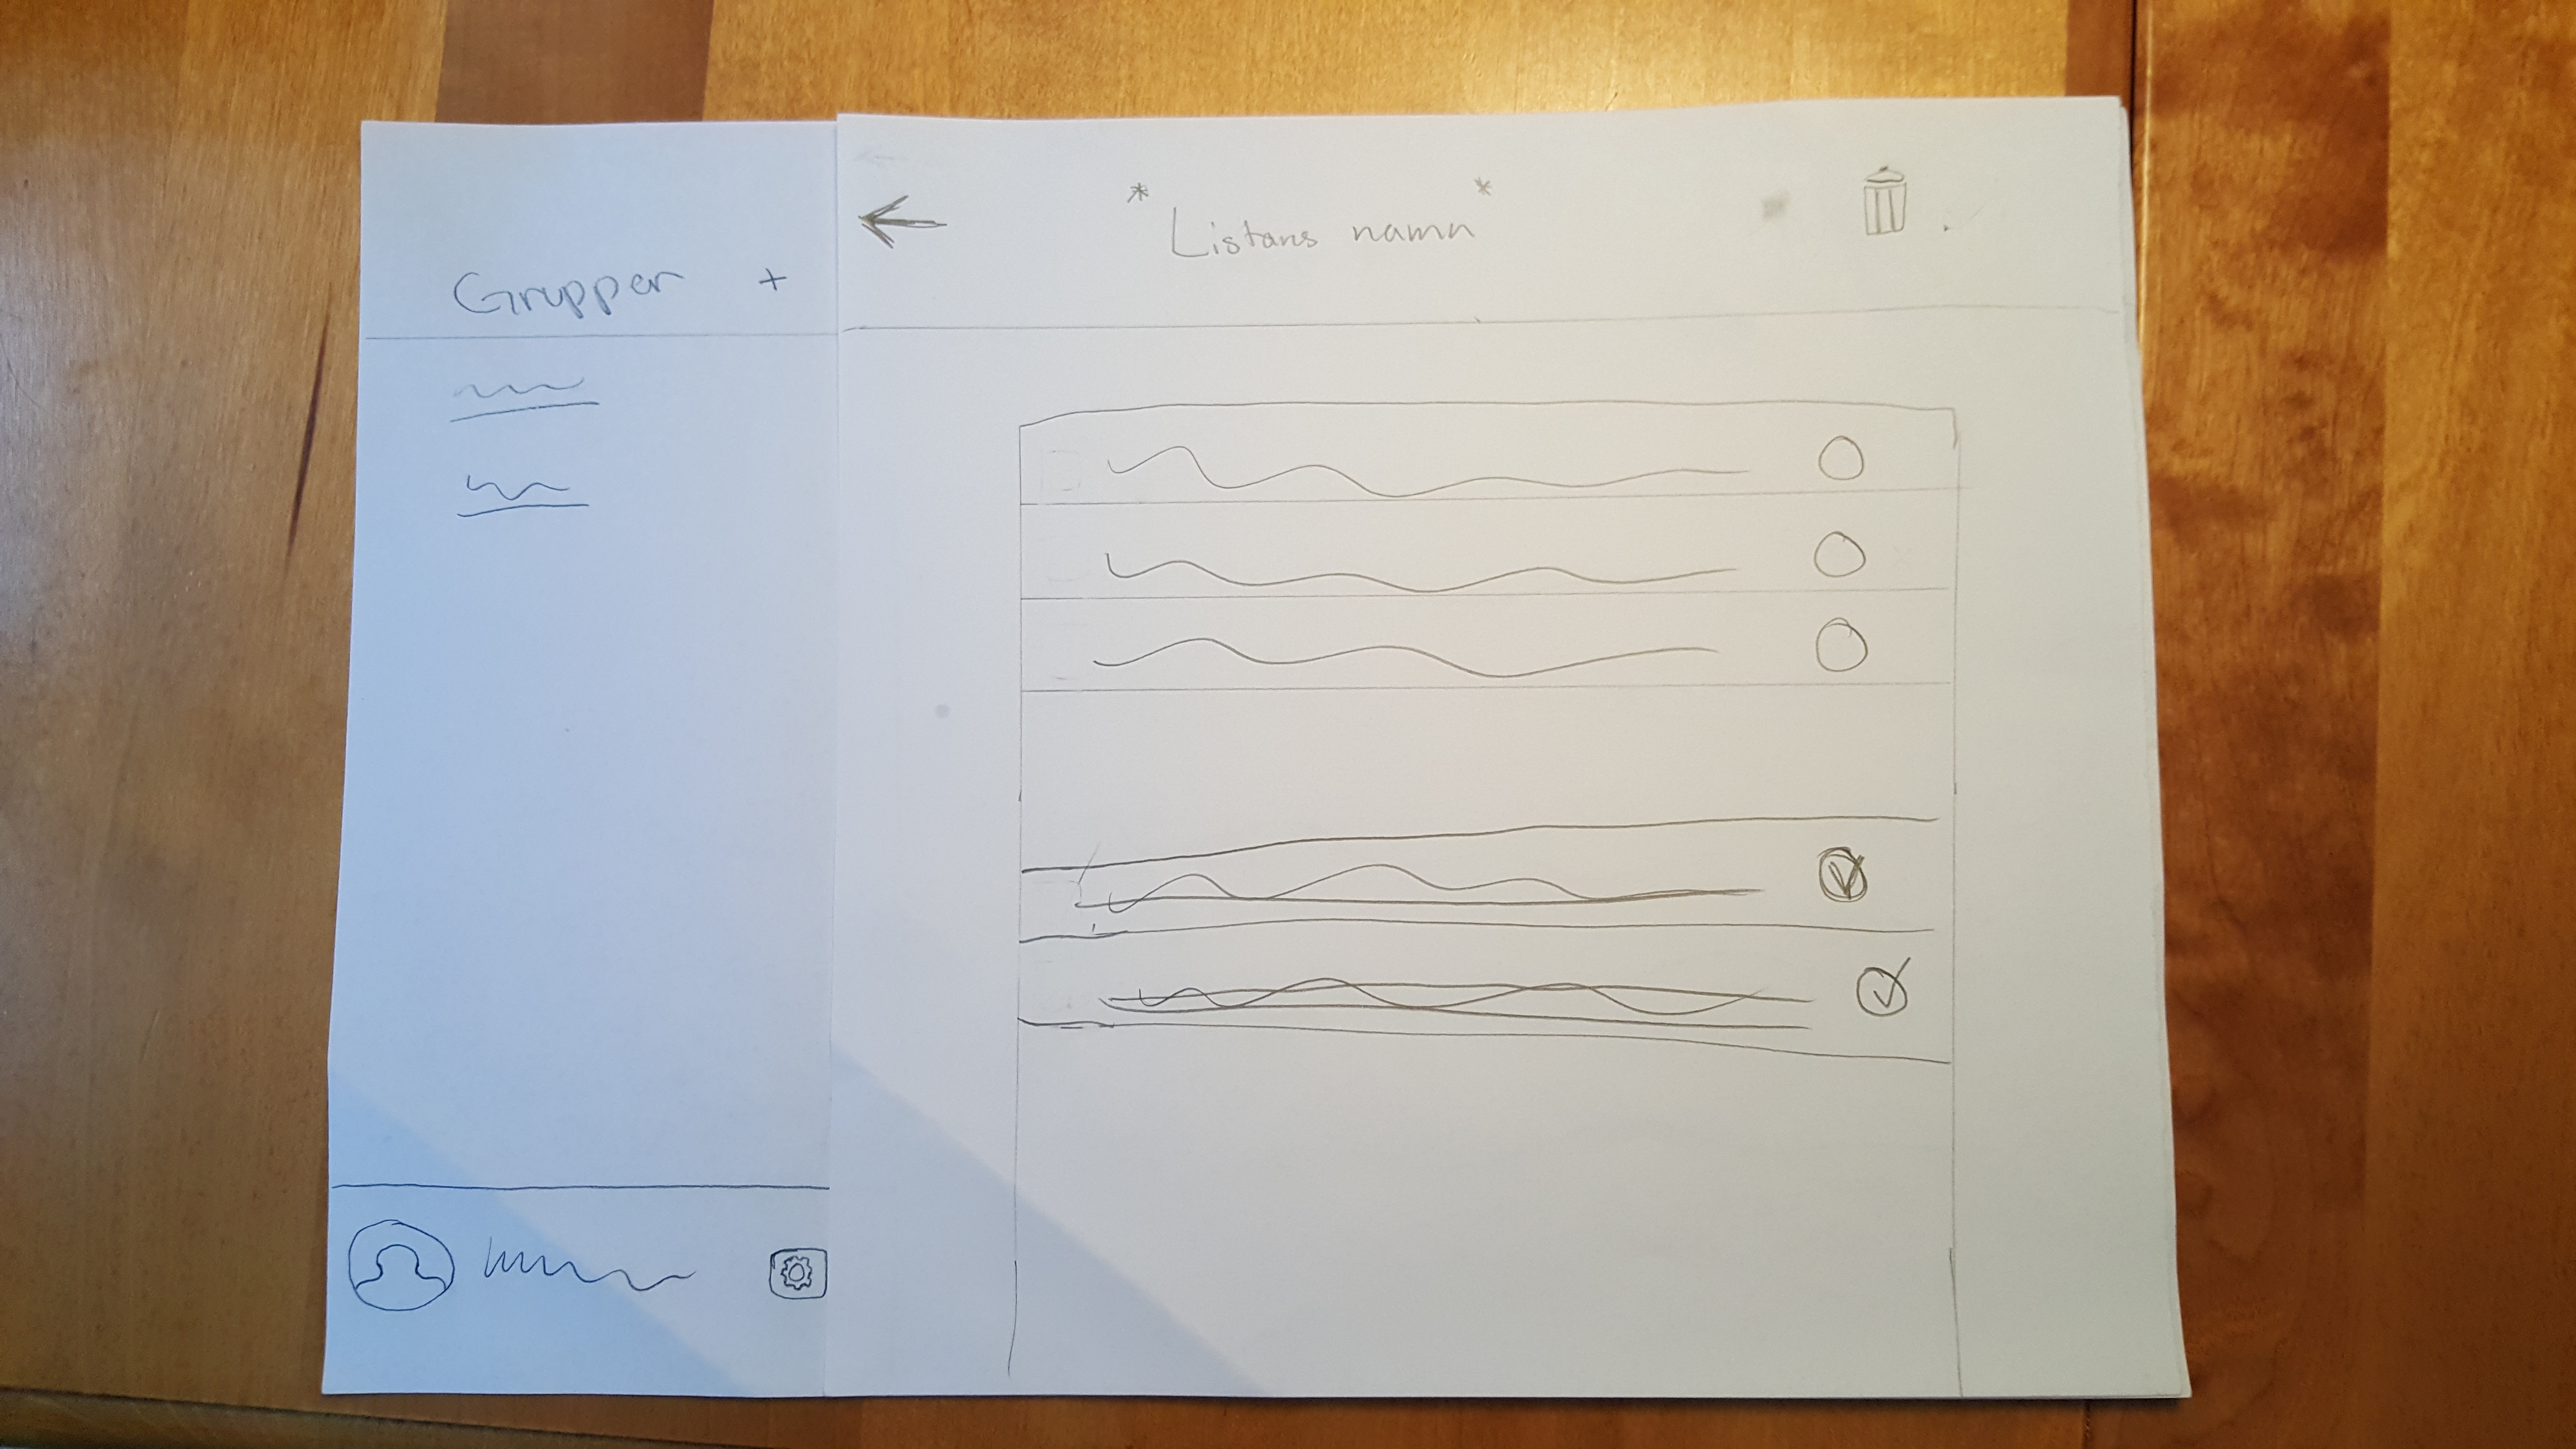 Grupper +
* Listans namn *